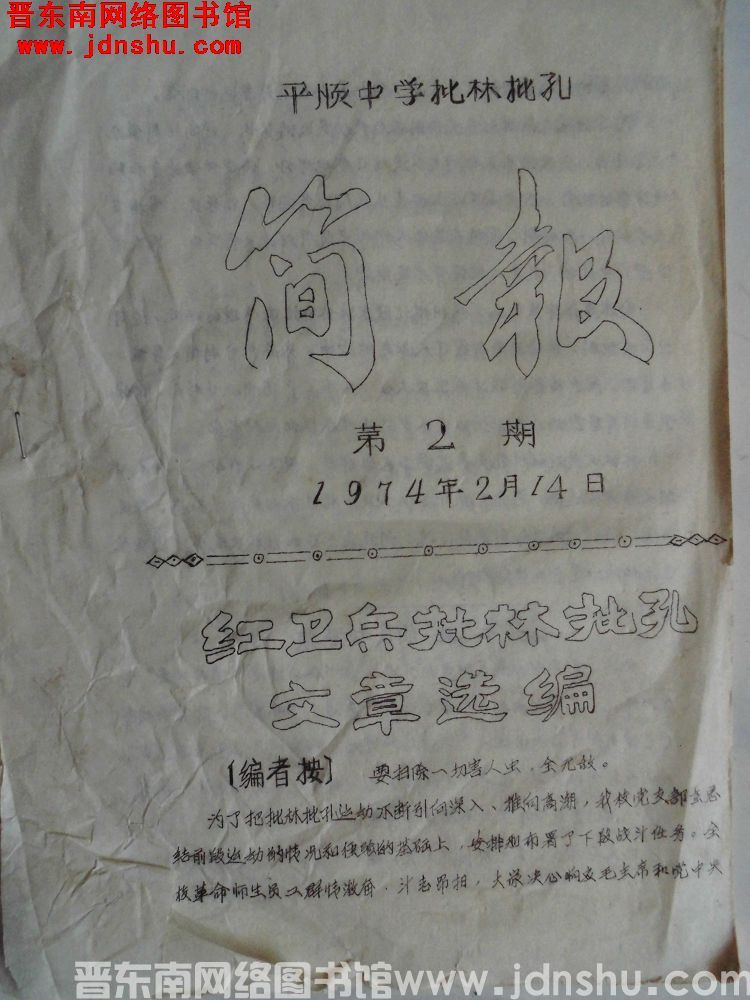 晋东南网络图书馆
www.jdnshu.com
平顺中学批林批孔
简报
第2期
1974年2月14日
红卫兵批林批孔
文章选编
〔编者按〕 要扫除一切害人虫,全无敌。
为了把批林批孔运动不断引向深入、推向高潮,我校党支部在总
结前段运动的情况和经验的基础上,安排和布署了下段战斗任务。全
校革命师生员工群情激奋,斗志昂扬,大家决心响应毛主席和党中央
晋东南网络图书馆www.jdnshu.com